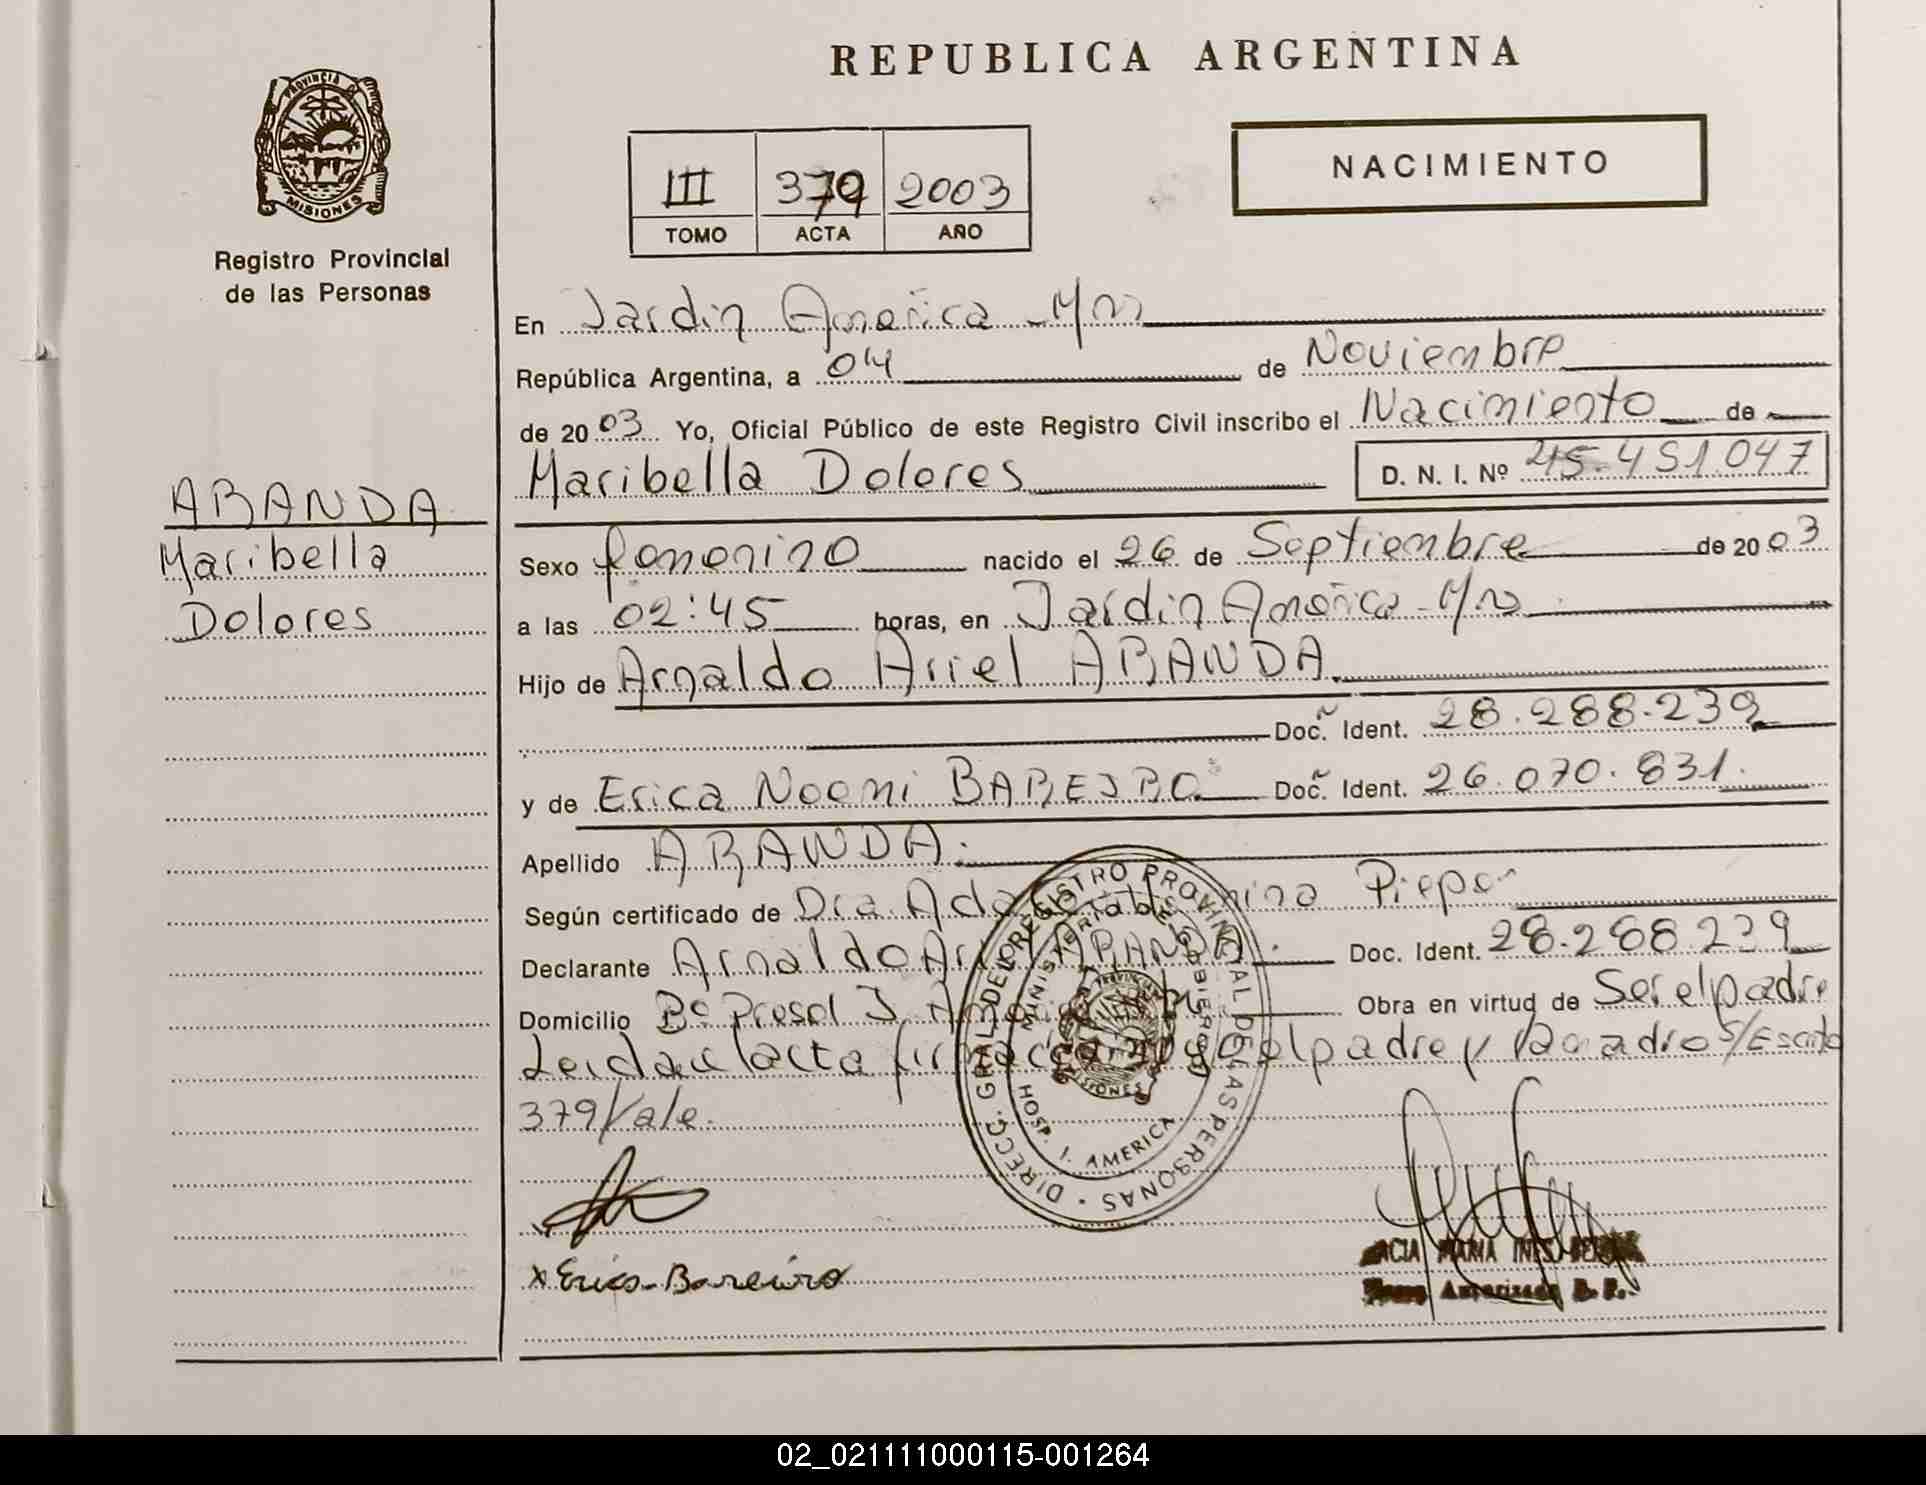 REPUBLICA ARGENTINA
PROVINCIA DE
MISIONES
Registro Provincial
de las Personas
III 379 2003
TOMO ACTA AÑO
NACIMIENTO
En Jardin America Mns
República Argentina, a 04 de Noviembre
de 2003 Yo, Oficial Público de este Registro Civil inscribo el Nacimiento de
Maribella Dolores D. N. I. Nº 45.451.047
ARANDA
Maribella
Dolores
Sexo femenino nacido el 26 de Septiembre de 2003
a las 02:45 horas, en Jardin America Mns
Hijo de Arnaldo Ariel ARANDA
Doc. Ident. 28.288.239
y de Erica Noemi BAREIRO Doc. Ident. 26.070.831.
Apellido ARANDA.
Según certificado de Dra. Ada Pieper
Declarante Arnaldo Ariel ARANDA. Doc. Ident. 28.288.239
Domicilio Bº Presol J. America Obra en virtud de Ser el padre
Leida el acta firma el padre y la madre S/Escrito
379 Vale.
DIRECC. GRAL. DEL REGISTRO PROVINCIAL DE LAS PERSONAS
MINISTERIO DE GOBIERNO
HOSP. J. AMERICA
x Erica Bareiro
MARIA INES
Autorizada
02_021111000115-001264